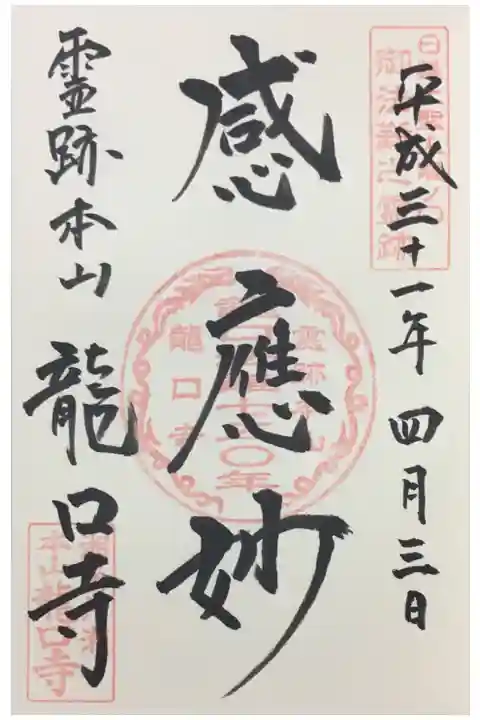 平成三十一年四月三日
御法難之霊跡
感應妙
霊跡本山
龍口寺
霊跡本山 龍口寺
本山龍口寺